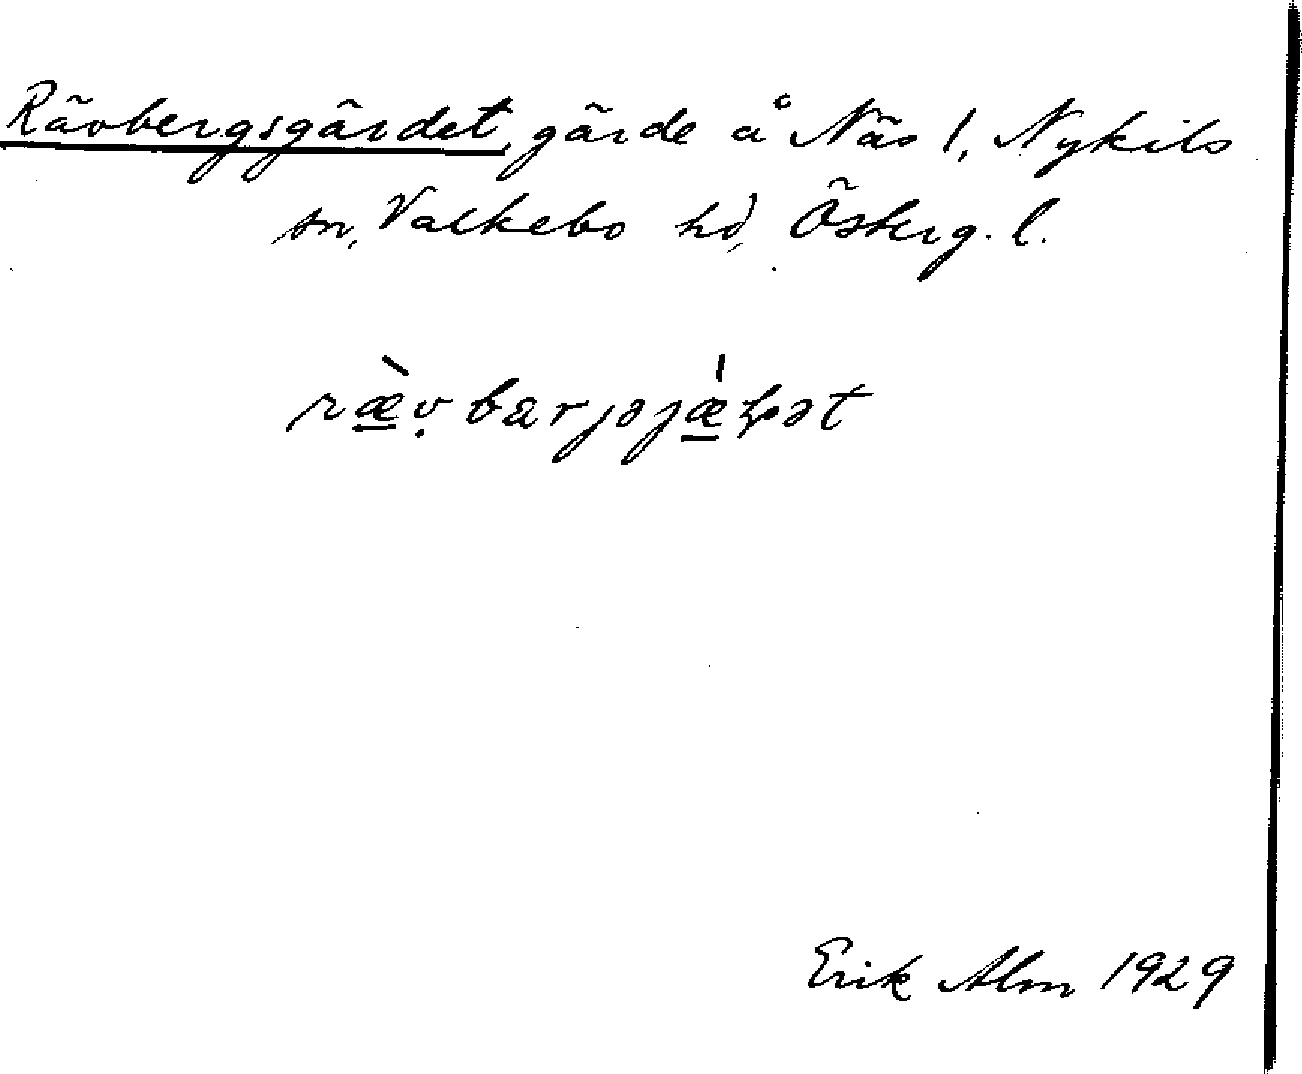 Rävbergsgärdet, gärde å Näs 1, Nykils
sn, Valkebo hd, Österg. l.
ræ̀vbærjsjǽḷət
Erik Alm 1929